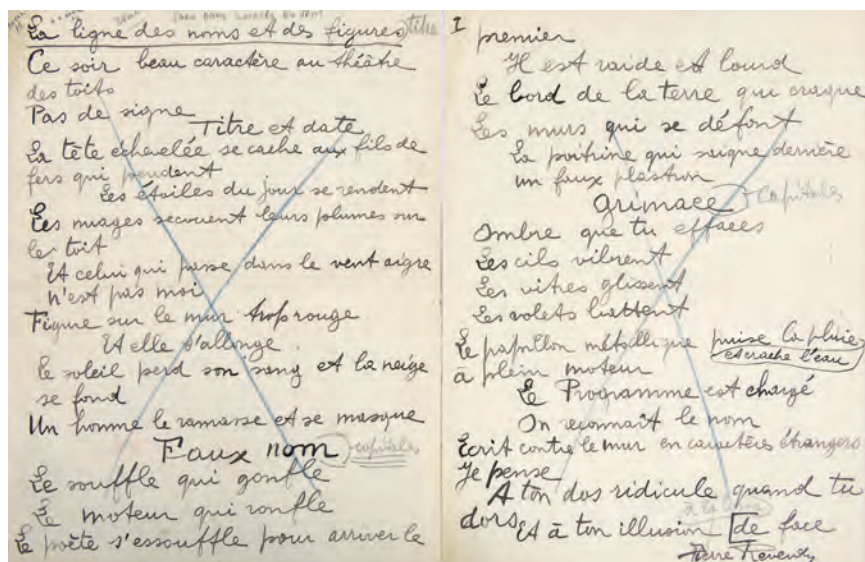 La ligne des noms et des figures titre
Ce soir beau caractère au théâtre
des toits
Pas de signe
Titre et date
La tête échevelée se cache aux fils de
fers qui pendent
Les étoiles du jour se rendent
Les nuages secouent leurs plumes sur
le toit
Et celui qui passe dans le vent aigre
n'est pas moi
Figure sur le mur trop rouge
Et elle s'allonge
le soleil perd son sang et la neige
se fond
Un homme le ramasse et se masque
Faux nom capitales
Le souffle qui gonfle
Le moteur qui ronfle
Le poète s'essouffle pour arriver le
I premier
Il est raide et lourd
Le bord de la terre qui craque
Les murs qui se défont
La poitrine qui saigne derrière
un faux plastron
Grimace Capitales
Ombre que tu effaces
Les cils vibrent
Les vitres glissent
Les volets battent
Le papillon métallique puise la pluie
et crache l'eau
à plein moteur
Le Programme est chargé
On reconnaît le nom
Ecrit contre le mur en caractères étrangers
Je pense
A ton dos ridicule quand tu
dors
à la
Et à ton illusion de face
Pierre Reverdy